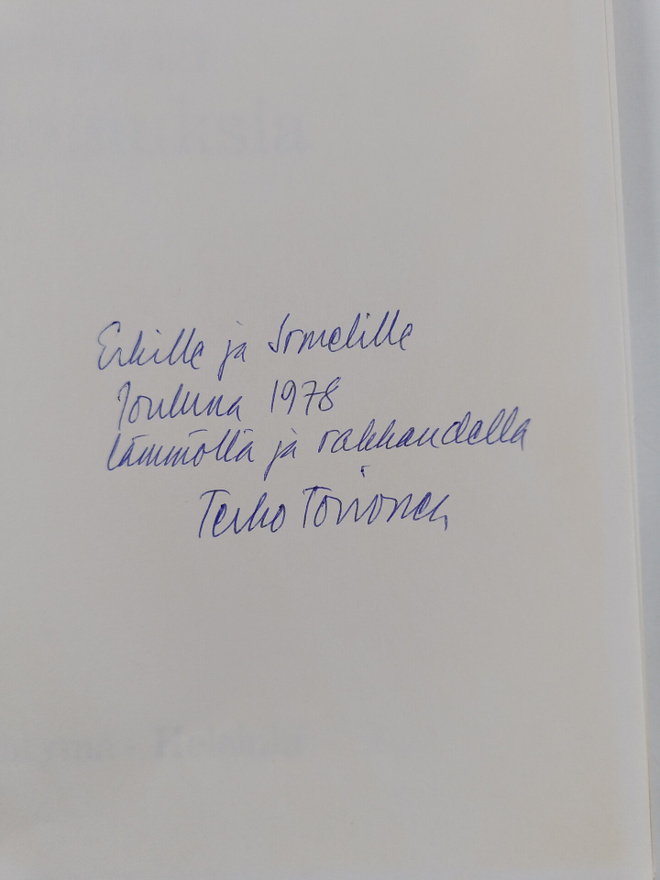 Erkille ja Sometille
Jouluna 1978
lämmöllä ja rakkaudella
Terho Toivonen
Helsinki